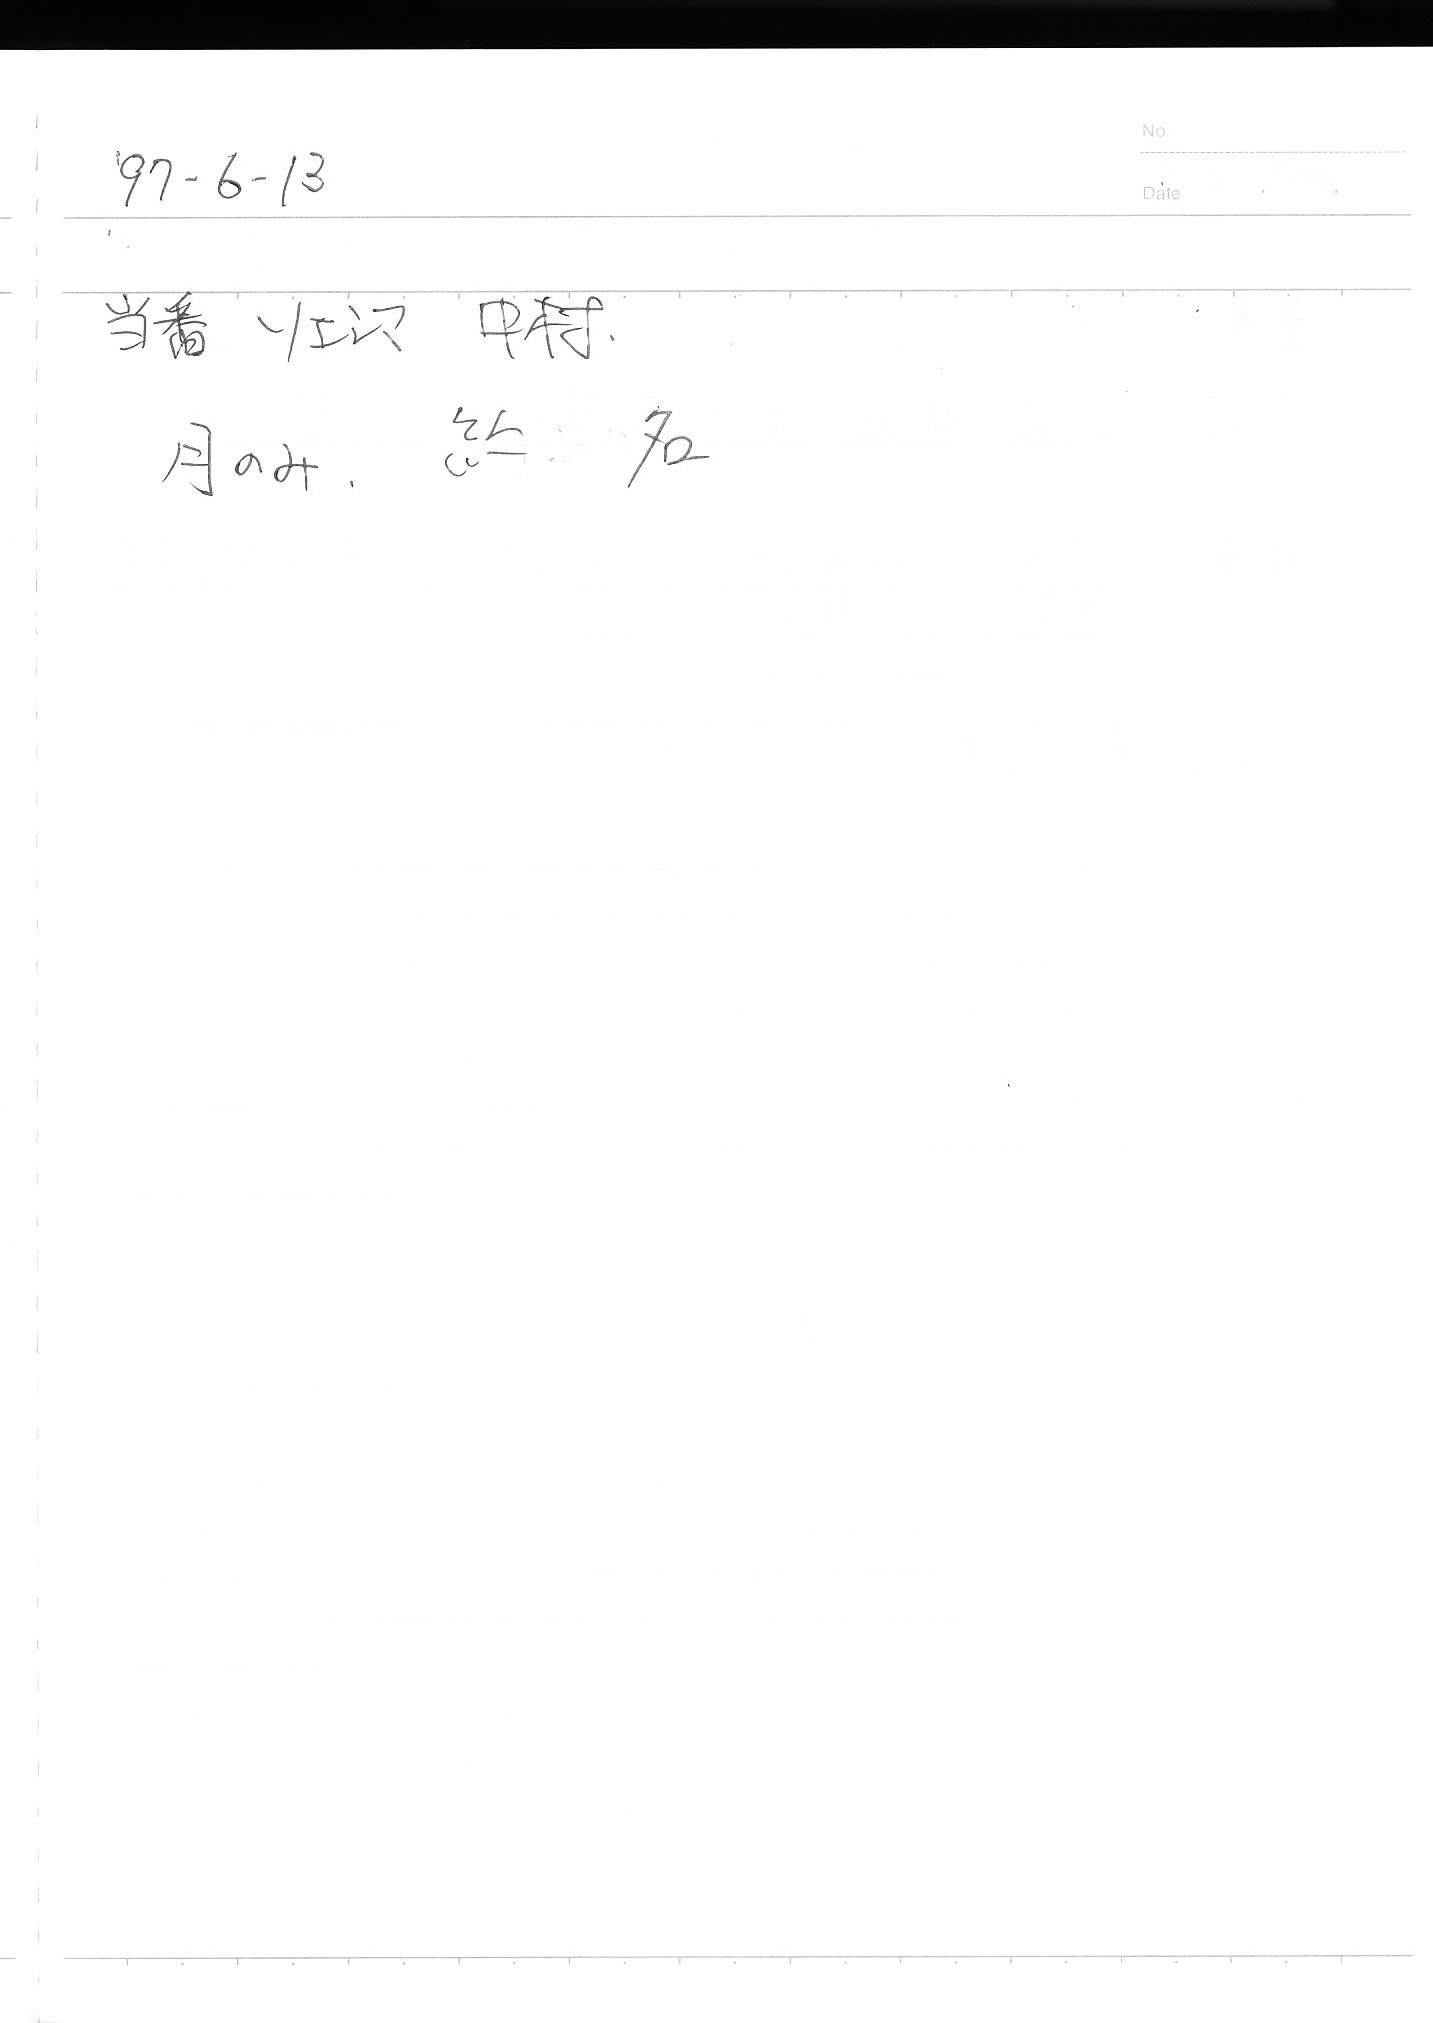 No.
'97-6-13
Date
当番 ソエジマ 中村.
月のみ. 名